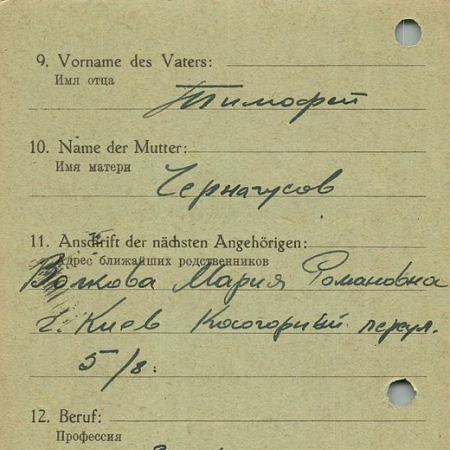 9. Vorname des Vaters:
Имя отца
Тимофей
10. Name der Mutter:
Имя матери
Чернагусов
11. Anschrift der nächsten Angehörigen:
Адрес ближайших родственников
Волкова Мария Романовна
г. Киев Косогорный переул.
5/8.
12. Beruf:
Профессия